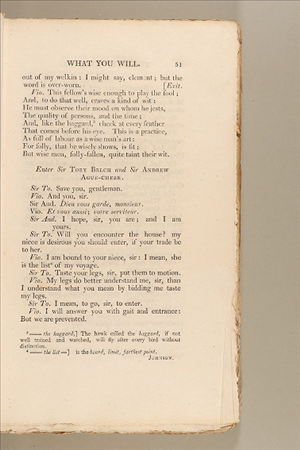 WHAT YOU WILL. 51
out of my welkin: I might say, element; but the
word is over-worn. [Exit.
Vio. This fellow's wise enough to play the fool;
And, to do that well, craves a kind of wit:
He must observe their mood on whom he jests,
The quality of persons, and the time;
And, like the haggard,⁵ check at every feather
That comes before his eye. This is a practice,
As full of labour as a wise man's art:
For folly, that he wisely shows, is fit;
But wise men, folly-fallen, quite taint their wit.
Enter Sir TOBY BELCH and Sir ANDREW
AGUE-CHEEK.
Sir To. Save you, gentleman.
Vio. And you, sir.
Sir And. Dieu vous garde, monsieur.
Vio. Et vous aussi; votre serviteur.
Sir And. I hope, sir, you are; and I am
yours.
Sir To. Will you encounter the house? my
niece is desirous you should enter, if your trade be
to her.
Vio. I am bound to your niece, sir: I mean, she
is the list⁶ of my voyage.
Sir To. Taste your legs, sir, put them to motion.
Vio. My legs do better understand me, sir, than
I understand what you mean by bidding me taste
my legs.
Sir To. I mean, to go, sir, to enter.
Vio. I will answer you with gait and entrance:
But we are prevented.
⁵ —— the haggard,] The hawk called the haggard, if not
well trained and watched, will fly after every bird without
distinction.
⁶ —— the list—] is the bound, limit, farthest point.
JOHNSON.